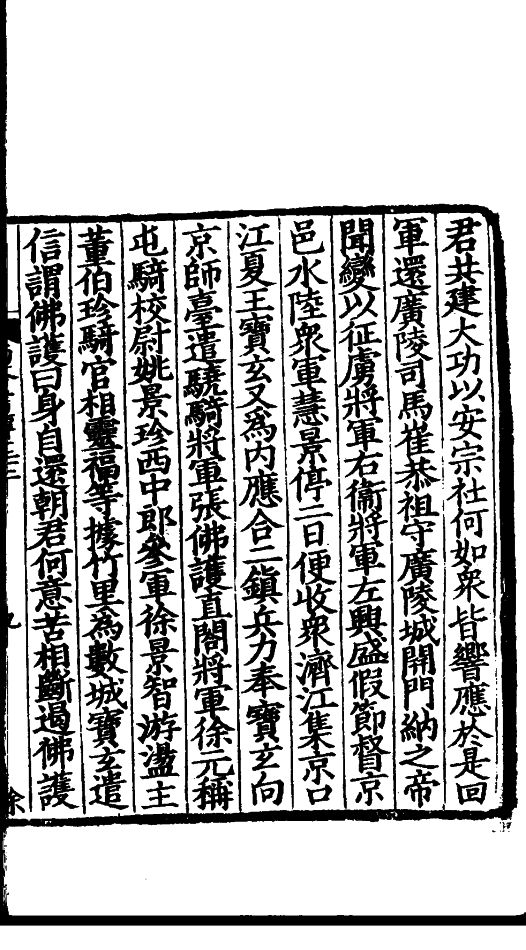 君共建大功以安宗社何如衆皆響應於是回
軍還廣陵司馬崔恭祖守廣陵城開門納之帝
聞變以征虜將軍右衞將軍左興盛假節督京
邑水陸衆軍慧景停二日便收衆濟江集京口
江夏王寶玄又爲内應合二鎮兵力奉寶玄向
京師臺遣驍騎將軍張佛護直閤將軍徐元稱
屯騎校尉姚景珍西中郎參軍徐景智游盪主
董伯珍騎官桓靈福等據竹里為數城寶玄遣
信謂佛護曰身自還朝君何意苦相斷遏佛護
九